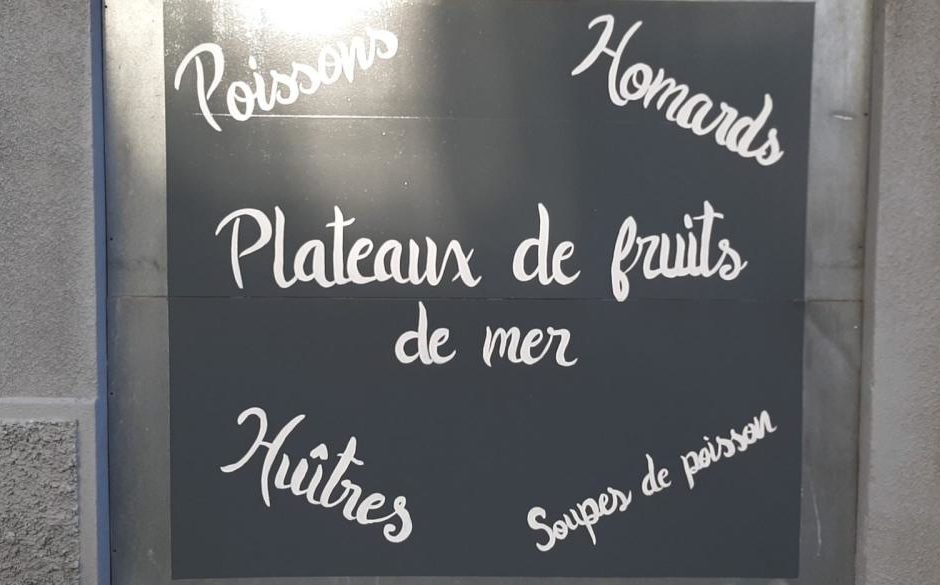 Poissons
Homards
Plateaux de fruits
de mer
Huîtres
Soupes de poisson